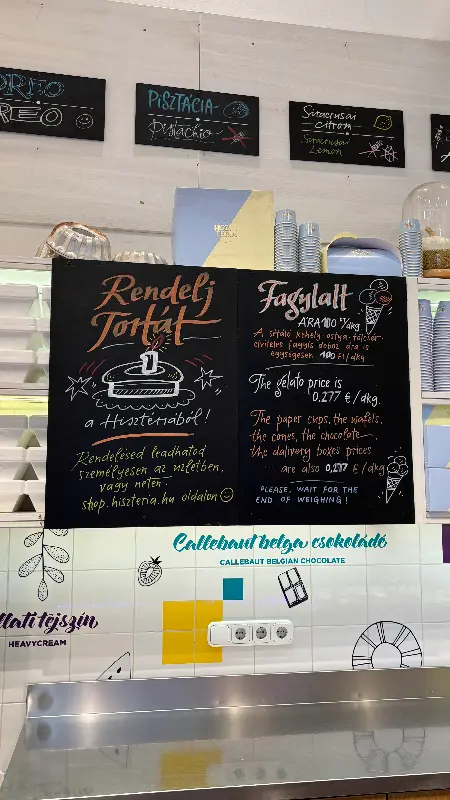 OREO
OREO
PISZTÁCIA
Pistachio
Siracusai
citrom
Siracusai
Lemon
Rendelj
Tortát
a Hisztériából!
Rendelésed leadhatod
személyesen az üzletben,
vagy neten:
shop.hiszteria.hu oldalon
Fagylalt
ÁRA 100 Ft/dkg
A sétáló kehely, ostya, tölcsér,
elviteles fagyis doboz ára is
egységesen 100 Ft/dkg
The gelato price is
0,277 € / dkg.
The paper cups, the wafels,
the cones, the chocolate
the dalivery boxes prices
are also 0,277 €/dkg
PLEASE, WAIT FOR THE
END OF WEIGHING!
Callebaut belga csokoládé
CALLEBAUT BELGIAN CHOCOLATE
llati tejszín
HEAVYCREAM